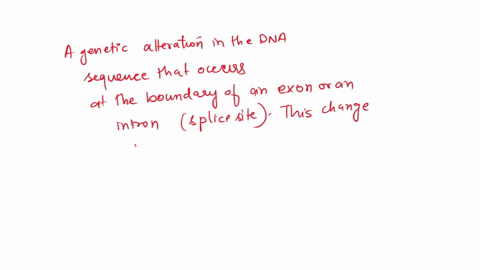 A genetic alteration in the DNA
sequence that occurs
at the boundary of an exon or an
intron (splice site). This change